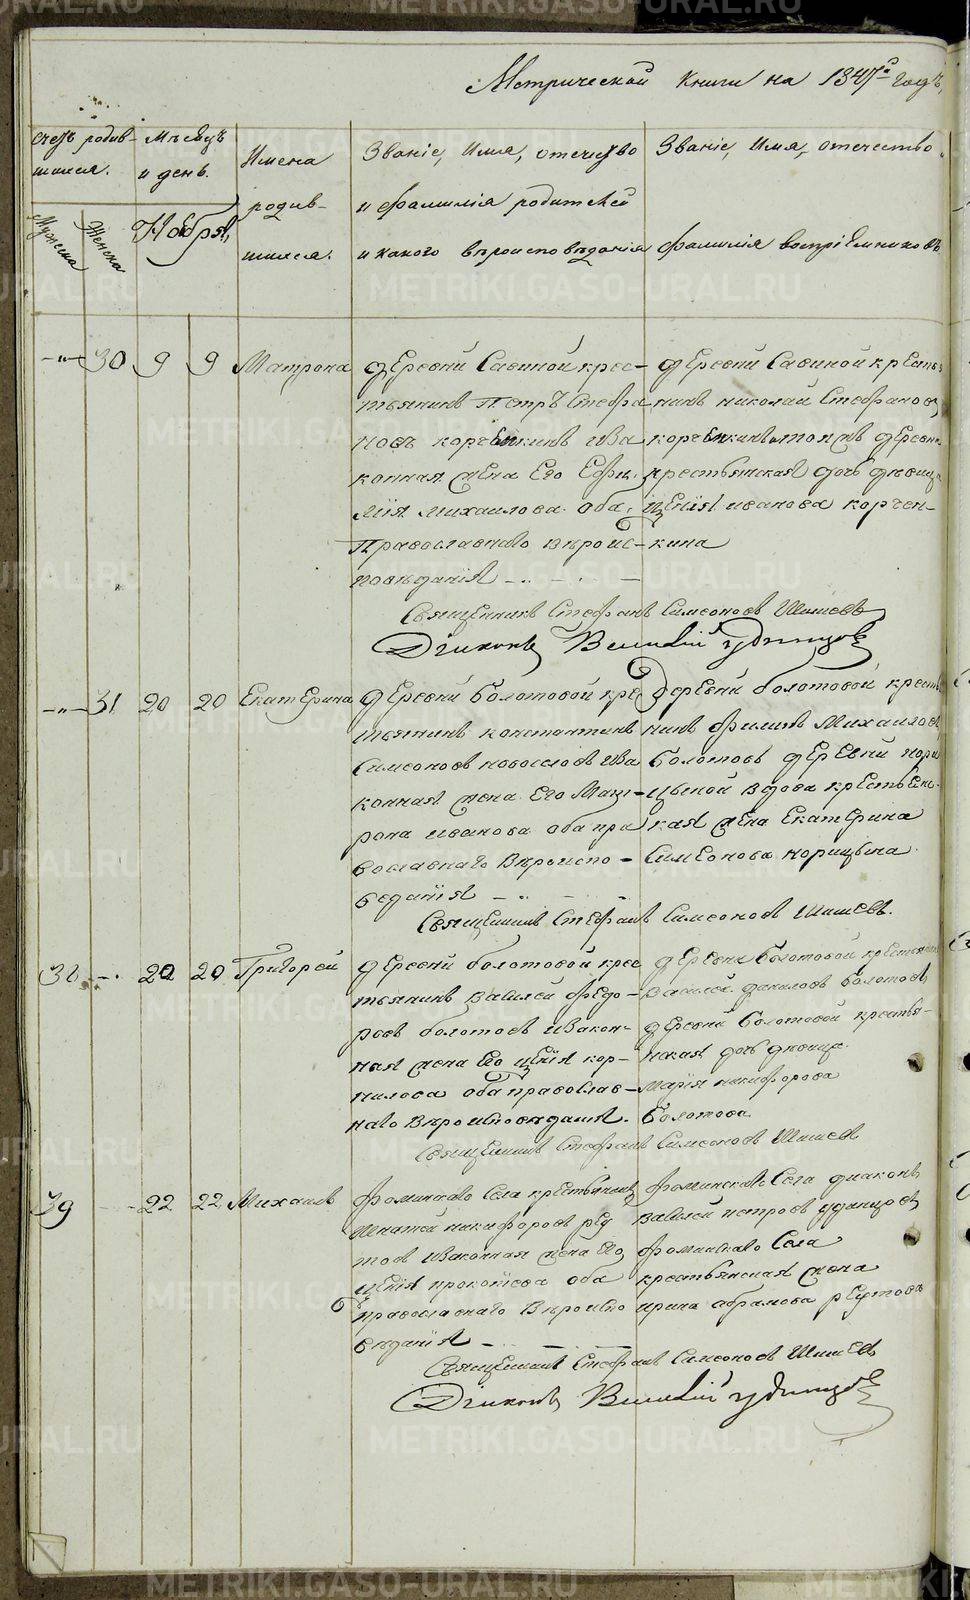 Метрической книги на 1847й годъ,
Счетъ родив-
шихся.
Мужеска
Женска
Мѣсяцъ
и день.
Ноября,
Имена
родив-
шихся.
Званіе, Имя, отечество
и фамилія родителей
и какого вѣроисповѣданія
Званіе, Имя, отечество
фамилія воспріемниковъ.
-"- 30 9 9 Матрона
деревни Савиной крес-
тьянинъ Петръ Стефа
новъ корченкинъ и за
конная жена Его Ефи-
мія михаилова оба
Православнаго вѣроис-
повѣданія
деревни Савиной крестья
нинъ николай Стефановъ
корченкинъ и тоиже деревни
крестьянская дочь дѣвица
Ксенія иванова корчен-
кина
Священникъ Стефанъ Симеоновъ Шишевъ
Діяконъ Василій Удинцовъ
-"- 31 20 20 Екатерина
деревни Болотовой кре
тьянинъ константинъ
Симеоновъ новоселовъ и за
конная жена его Мат-
рона иванова оба пра
вославнаго Вѣроиспо-
веданія
Деревни болотовой кресть
нинъ филипъ Михаиловъ
Болотовъ деревни кори
цыной вдова крестьянс-
кая жена Екатерина
Симеонова корицына
Священникъ Стефанъ Симеоновъ Шишевъ.
38 20 20 Григорей
деревни болотовой крес
тьянинъ Василей федо-
ровъ болотовъ и закон-
ная жена его Ксенія кор-
нилова оба православ-
наго Вѣроисповѣданія.
деревни Болотовой крестьянинъ
Василей даниловъ болотовъ
деревни Болотовой крестья-
нская дочь дѣвица
Марія никифорова
Болотова
Священникъ Стефанъ Симеоновъ Шишевъ
39 22 22 Михаилъ
фоминскаго Села крестьянинъ
Игнатей никифоровъ реу
товъ и законная жена его
Ксенія прокопьева оба
православнаго Вѣроиспо
вѣданія
фоминскаго Села диаконъ
Василей петровъ удинцовъ
фоминскаго Села
крестьянская жена
ирина абрамова реутова
Священникъ Стефанъ Симеоновъ Шишевъ
Діяконъ Василій Удинцовъ
METRIKI.GASO-URAL.RU